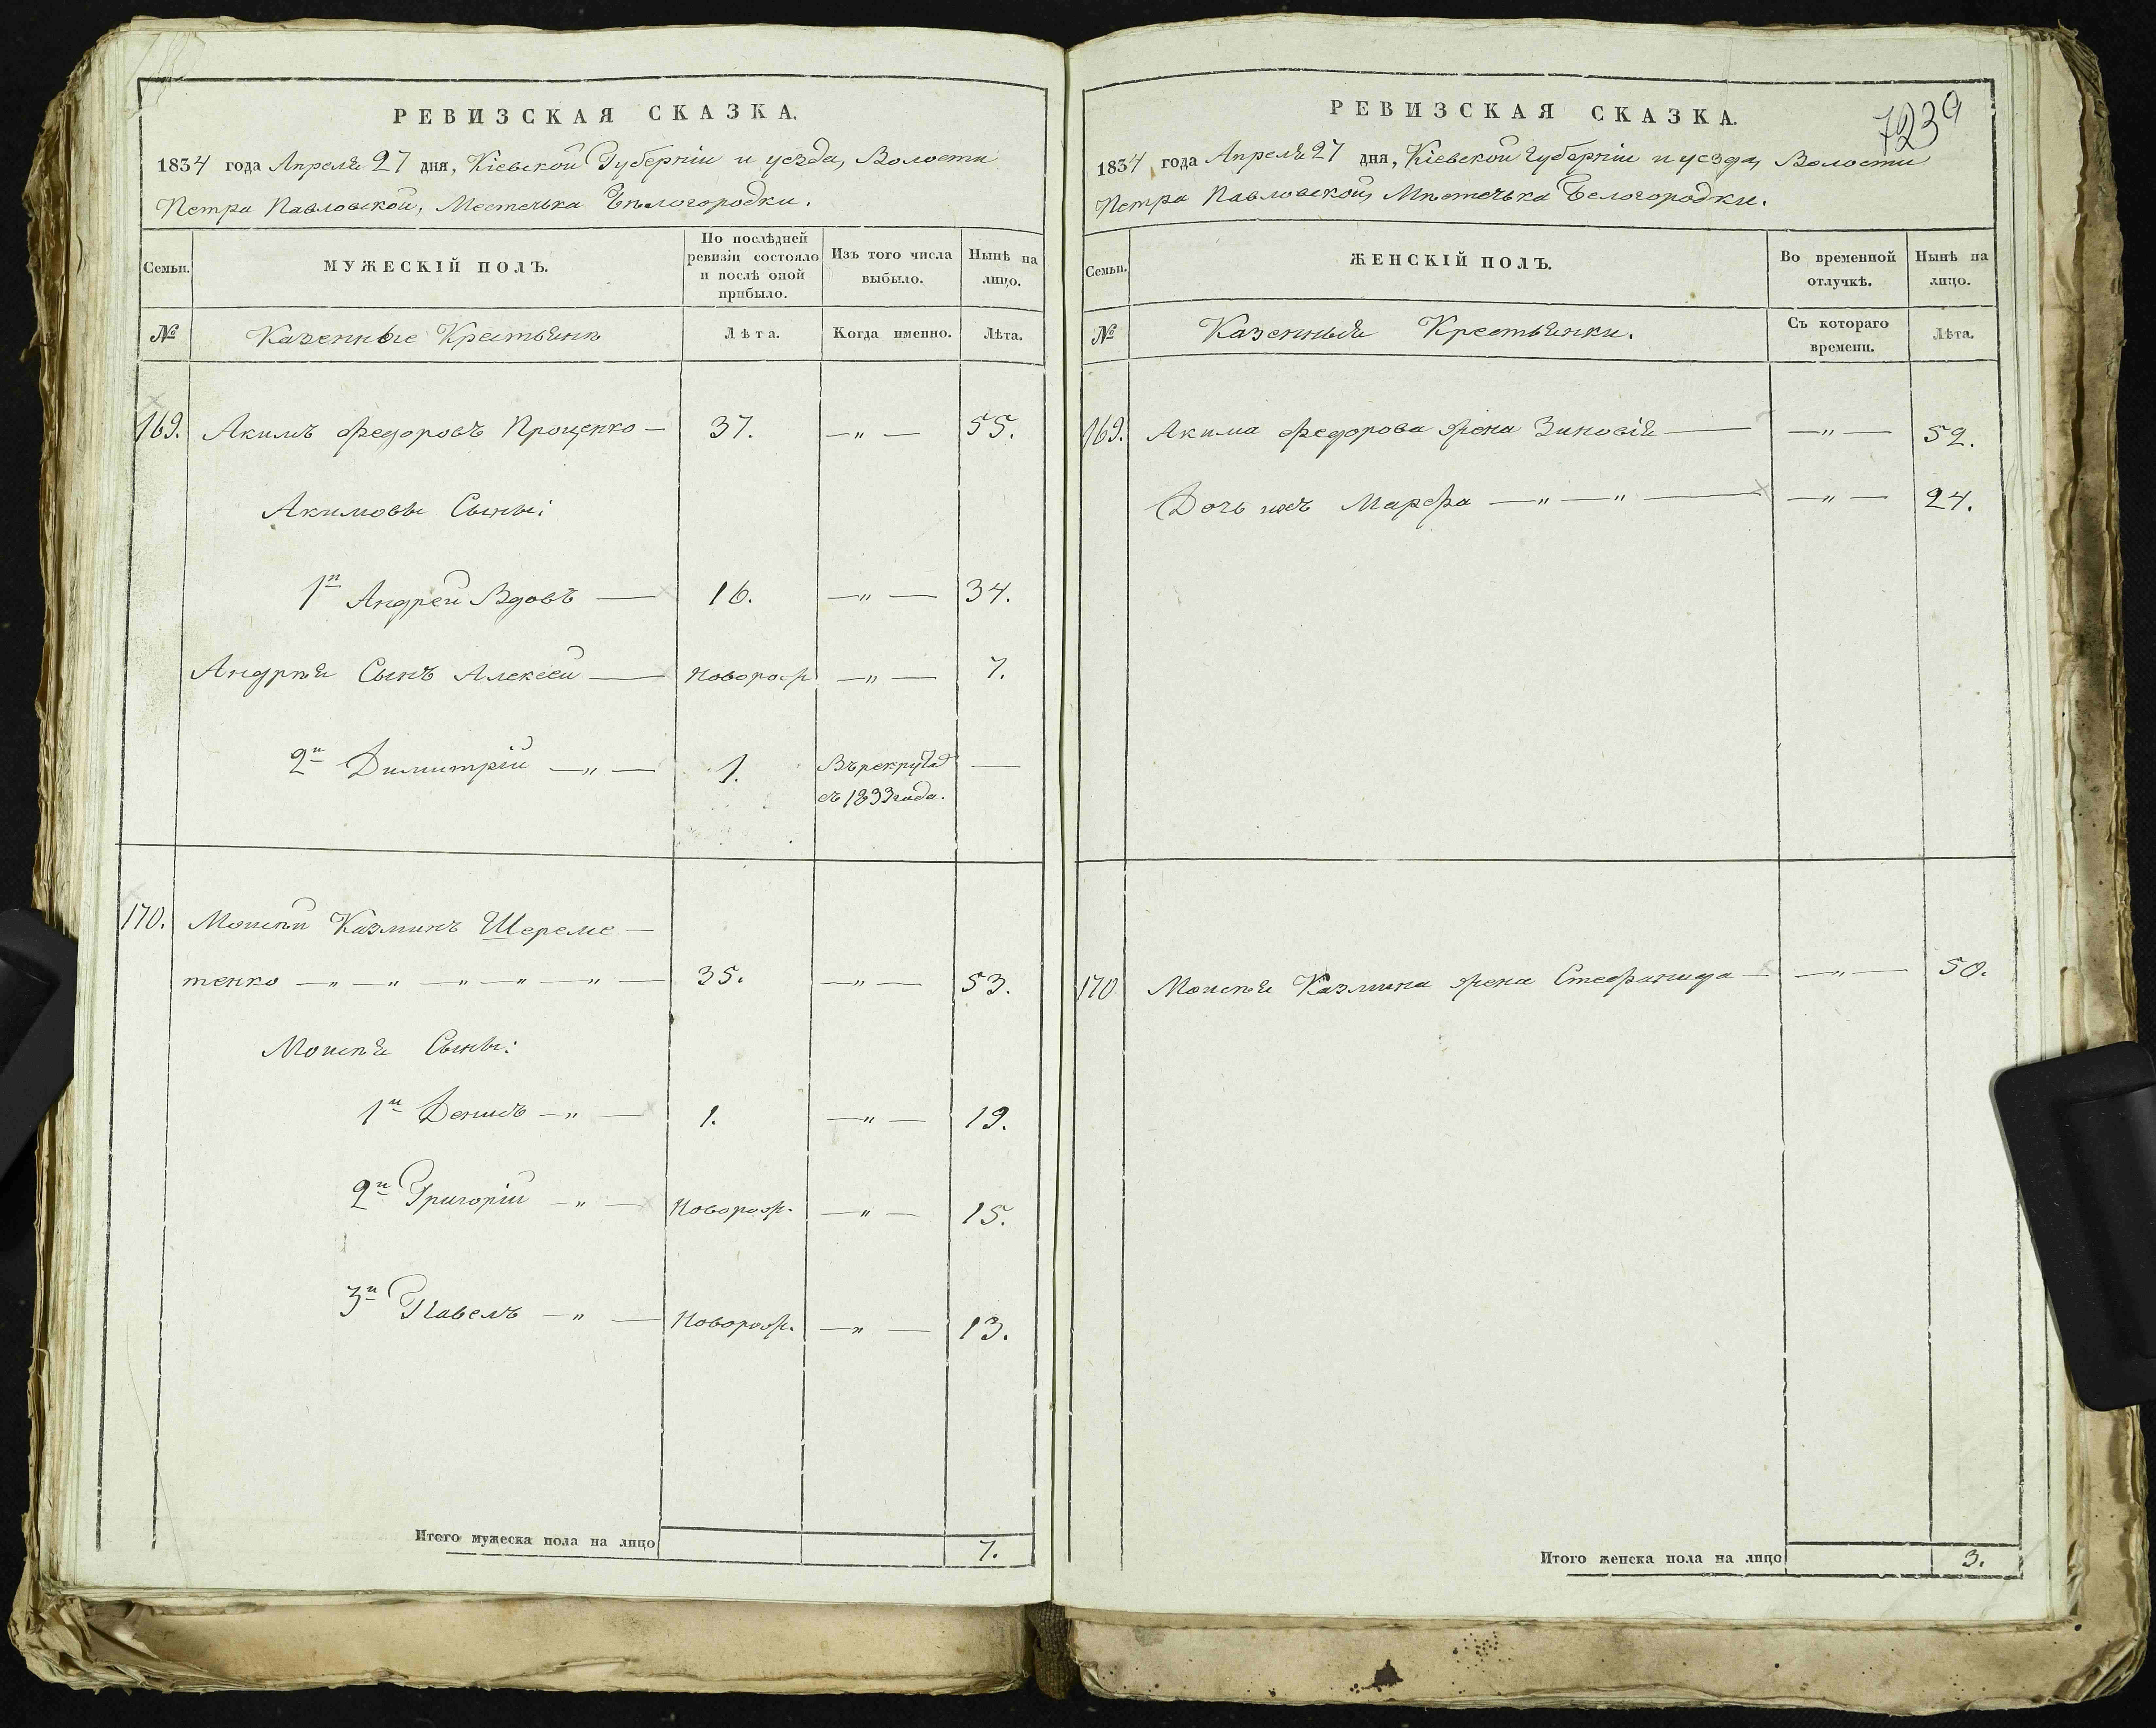 РЕВИЗСКАЯ СКАЗКА.
1834 года Апреля 27 дня, Кіевской Губерніи и уезда, Волости
Петра Павловской, Местечка Бѣлогородки.
Семьи.
МУЖЕСКІЙ ПОЛЪ.
По послѣдней ревизіи состояло и послѣ оной прибыло.
Изъ того числа выбыло.
Нынѣ на лицо.
№
Казенные Крестьянѣ
Лѣта.
Когда именно.
Лѣта.
169. Акимъ Федоровъ Проценко — 37. — " — 55.
Акимовы Сыны:
1й Андрей Вдовъ — 16. — " — 34.
Андрѣя Сынъ Алексей — Новорож — " — 7.
2й Димитрій — " — 1. Въ рекрутах —
съ 1833 года.
170. Моисѣй Казминъ Шереме —
тенко — " — " — " — " — " — 35. — " — 53.
Моисѣя Сыны:
1й Денисъ — " — 1. — " — 19.
2й Григорій — " — Новорож. — " — 15.
3й Павелъ — " — Новорож. — " — 13.
Итого мужеска пола на лицо 7.
РЕВИЗСКАЯ СКАЗКА.
7239
1834 года Апреля 27 дня, Кіевской губерніи и уезда, Волости
Петра Павловской, Мѣстечька Белогородки.
Семьи.
ЖЕНСКІЙ ПОЛЪ.
Во временной отлучкѣ.
Нынѣ на лицо.
№
Казенныя Крестьянки.
Съ котораго времени.
Лѣта.
169. Акима Федорова жена Зиновія — — " — 52.
Дочь ихъ Марфа — " — " — — " — 24.
170 Моисѣя Казмина жена Стефанида — — " — 50.
Итого женска пола на лицо 3.